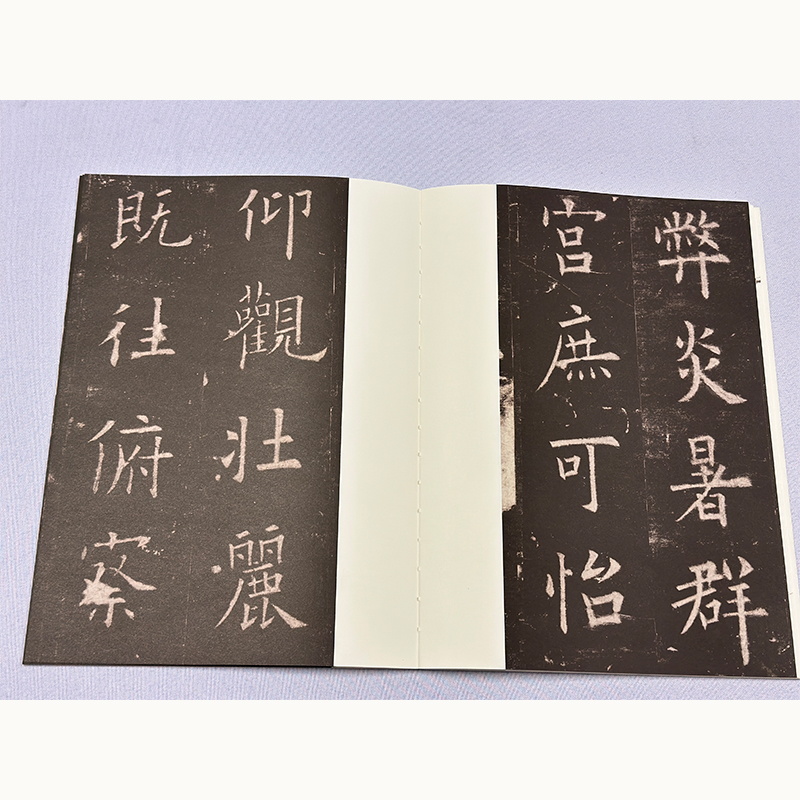 弊炎暑群
宫庶可怡
仰觀壯麗
既往俯察